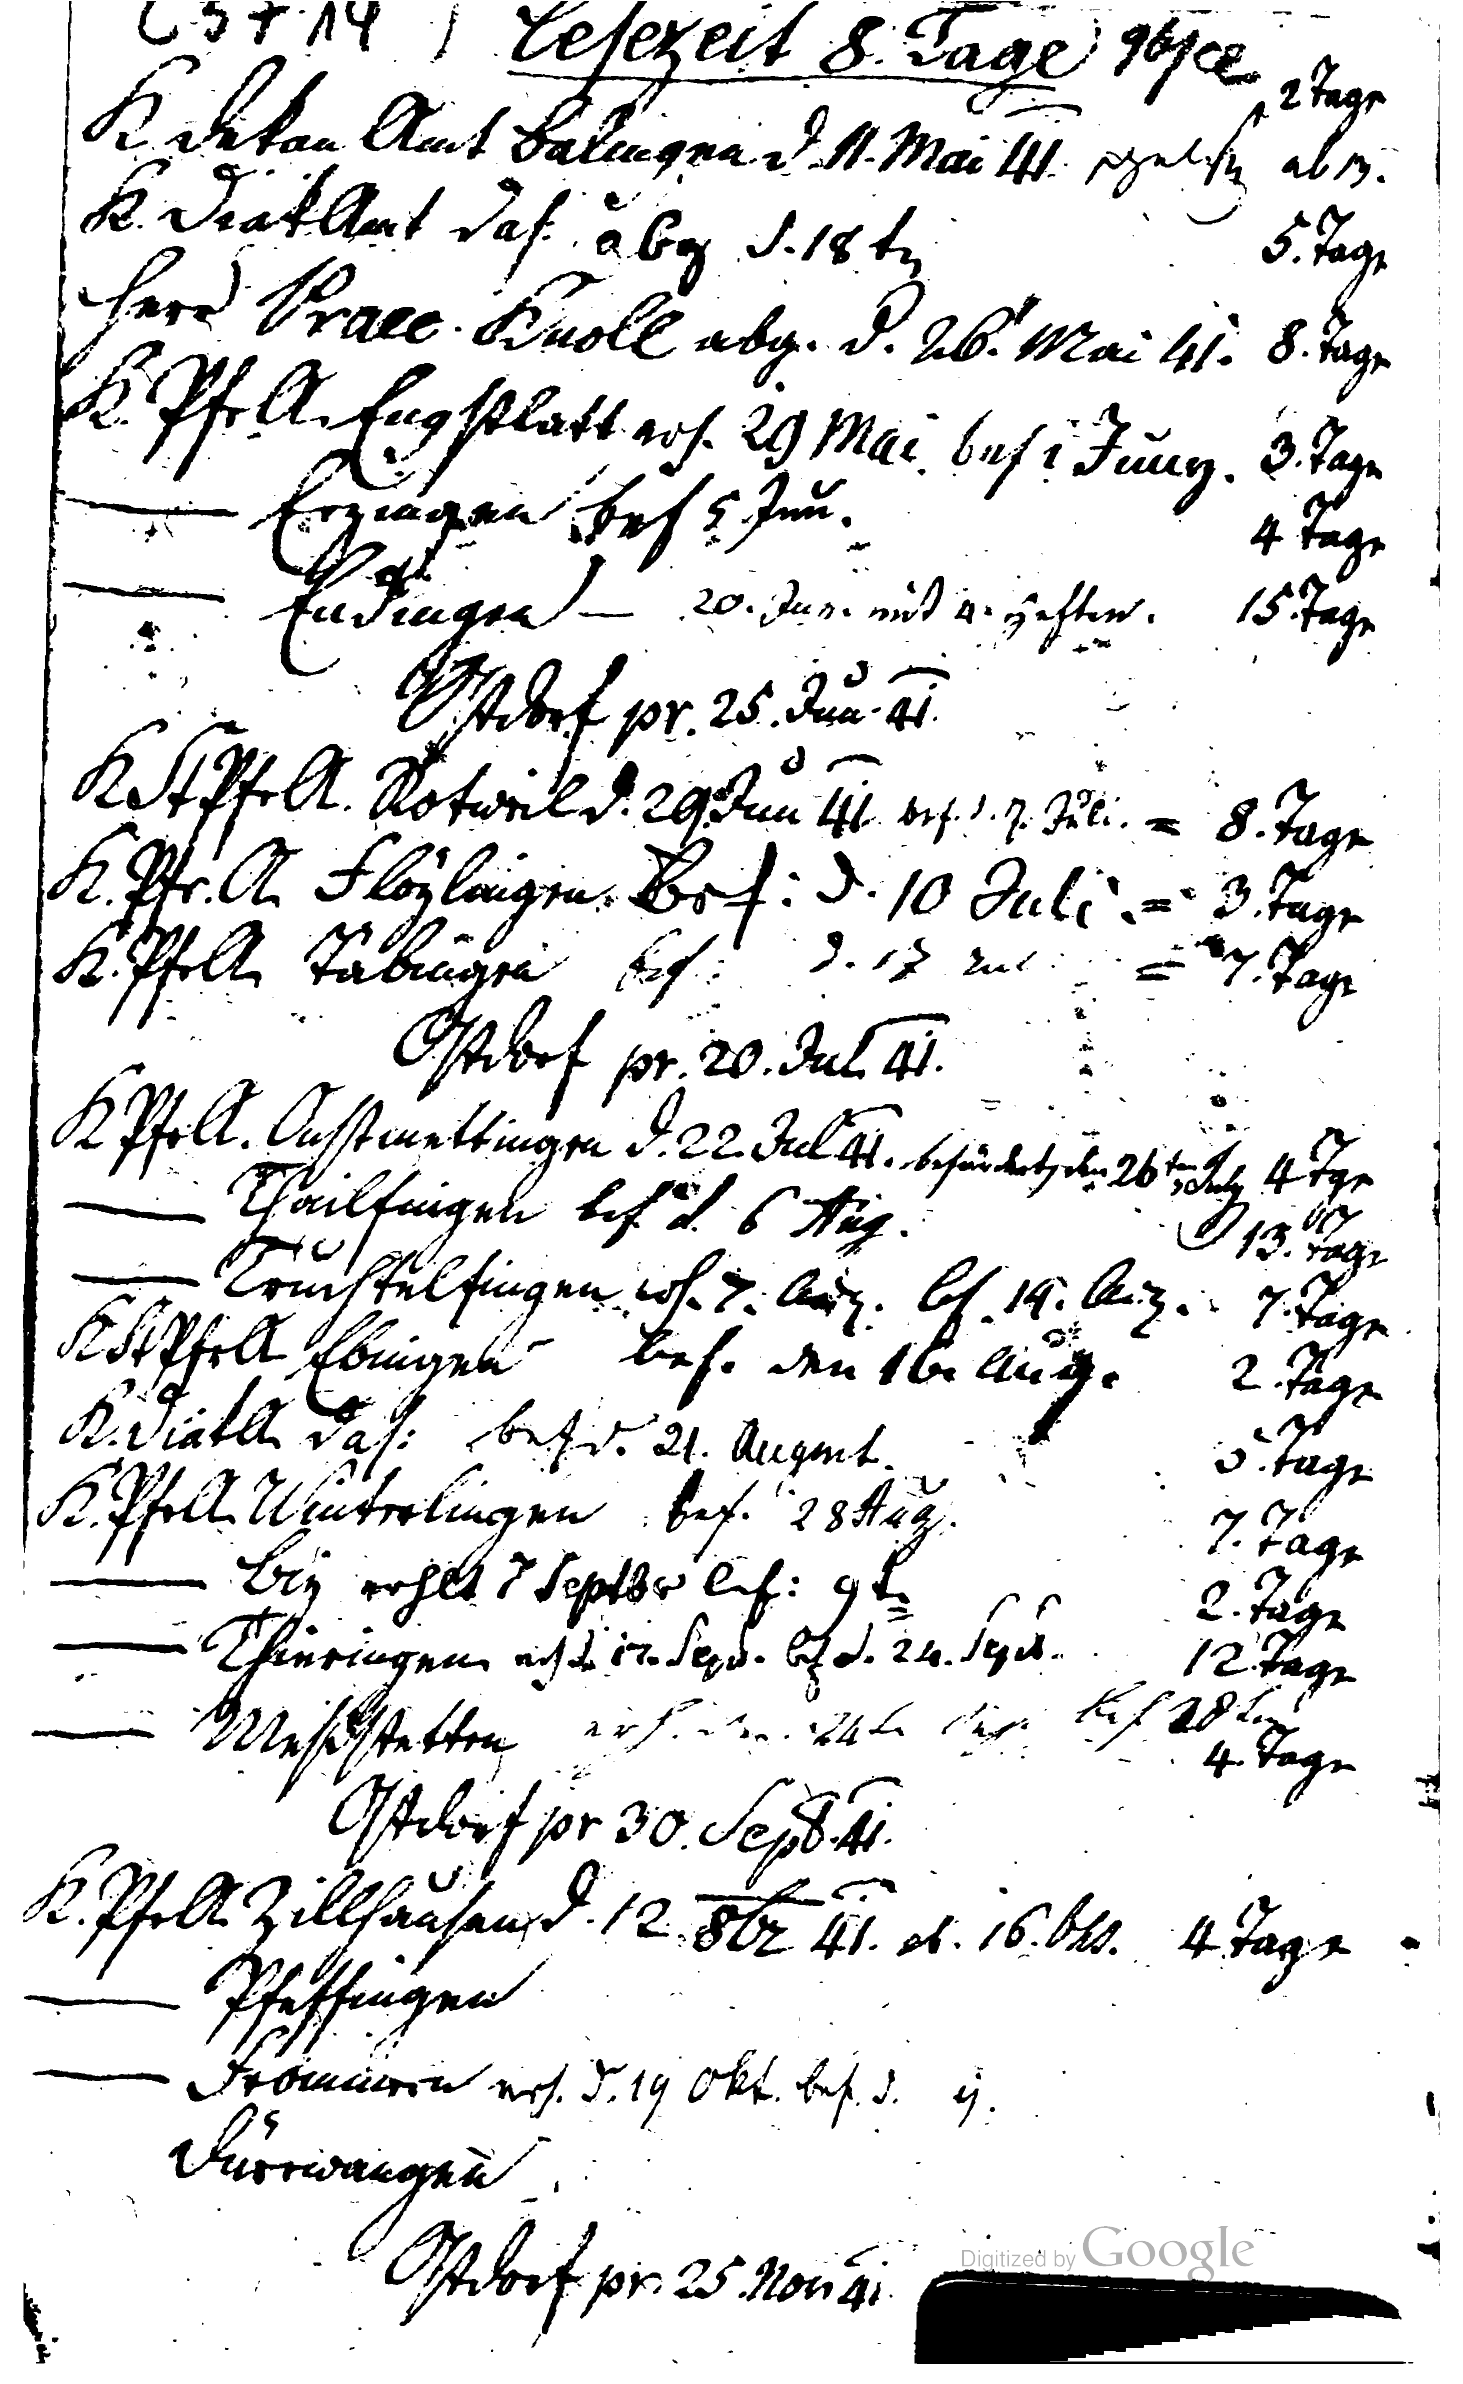 Lesezeit 8. Tage
2 Tage
K. Dekan Amt Balingen d. 11. Mai 41.
K. Diak Amt das. abg d. 18 t.
5. Tage
Herr Praec. Knoll abg. d. 26. Mai 41. 8. Tage
K. Pfr A. Engstlatt erh. 29 Mai. bef 1 Juny. 3. Tage
— Erzingen bef 5 Jun.
4 Tage
— Endingen — 20. Jun. mit 4. Heften. 15. Tage
Ostdorf pr. 25. Jun. 41.
K StPfr A. Rotweil d. 29. Jun 41 bef. d. 7. Juli. = 8. Tage
K. Pfr. A. Flözlingen. Bef: d. 10 Juli. = 3. Tage
K. Pfr A. Täbingen bef: d. 17 Jul. = 7. Tage
Ostdorf pr. 20. Jul. 41.
K Pfr A. Onstmettingen d. 22. Jul 41. befördert den 26ten July 4 Tge
— Thailfingen bef d. 6 Aug.
13. Tage
— Truchtelfingen erh. 7. Aug. bf. 14. Aug. 7. Tage
K StPfr A Ebingen bef. den 16. Aug. 2. Tage
K. Diak A. das: bef d. 21. August. 5. Tage
K. Pfr A. Winterlingen bef. 28 Aug. 7. Tage
— Biz erhlt 7 Septbr bef: 9 t. 2. Tage
— Thieringen erh d. 12. Sept. bf d. 24. Sept. 12 Tage
— Meßstetten erh. den 24t. bef 28ten
4. Tage
Ostdorf pr 30. Sept. 41.
K. Pfr A. Zillhausen d. 12. 8br 41. ab. 16. Okt. 4 Tage
— Pfeffingen
— Frommern erh. d. 19 Okt. bef. d. ej.
Dürrwangen
Ostdorf pr. 25. Nov 41.
Digitized by Google